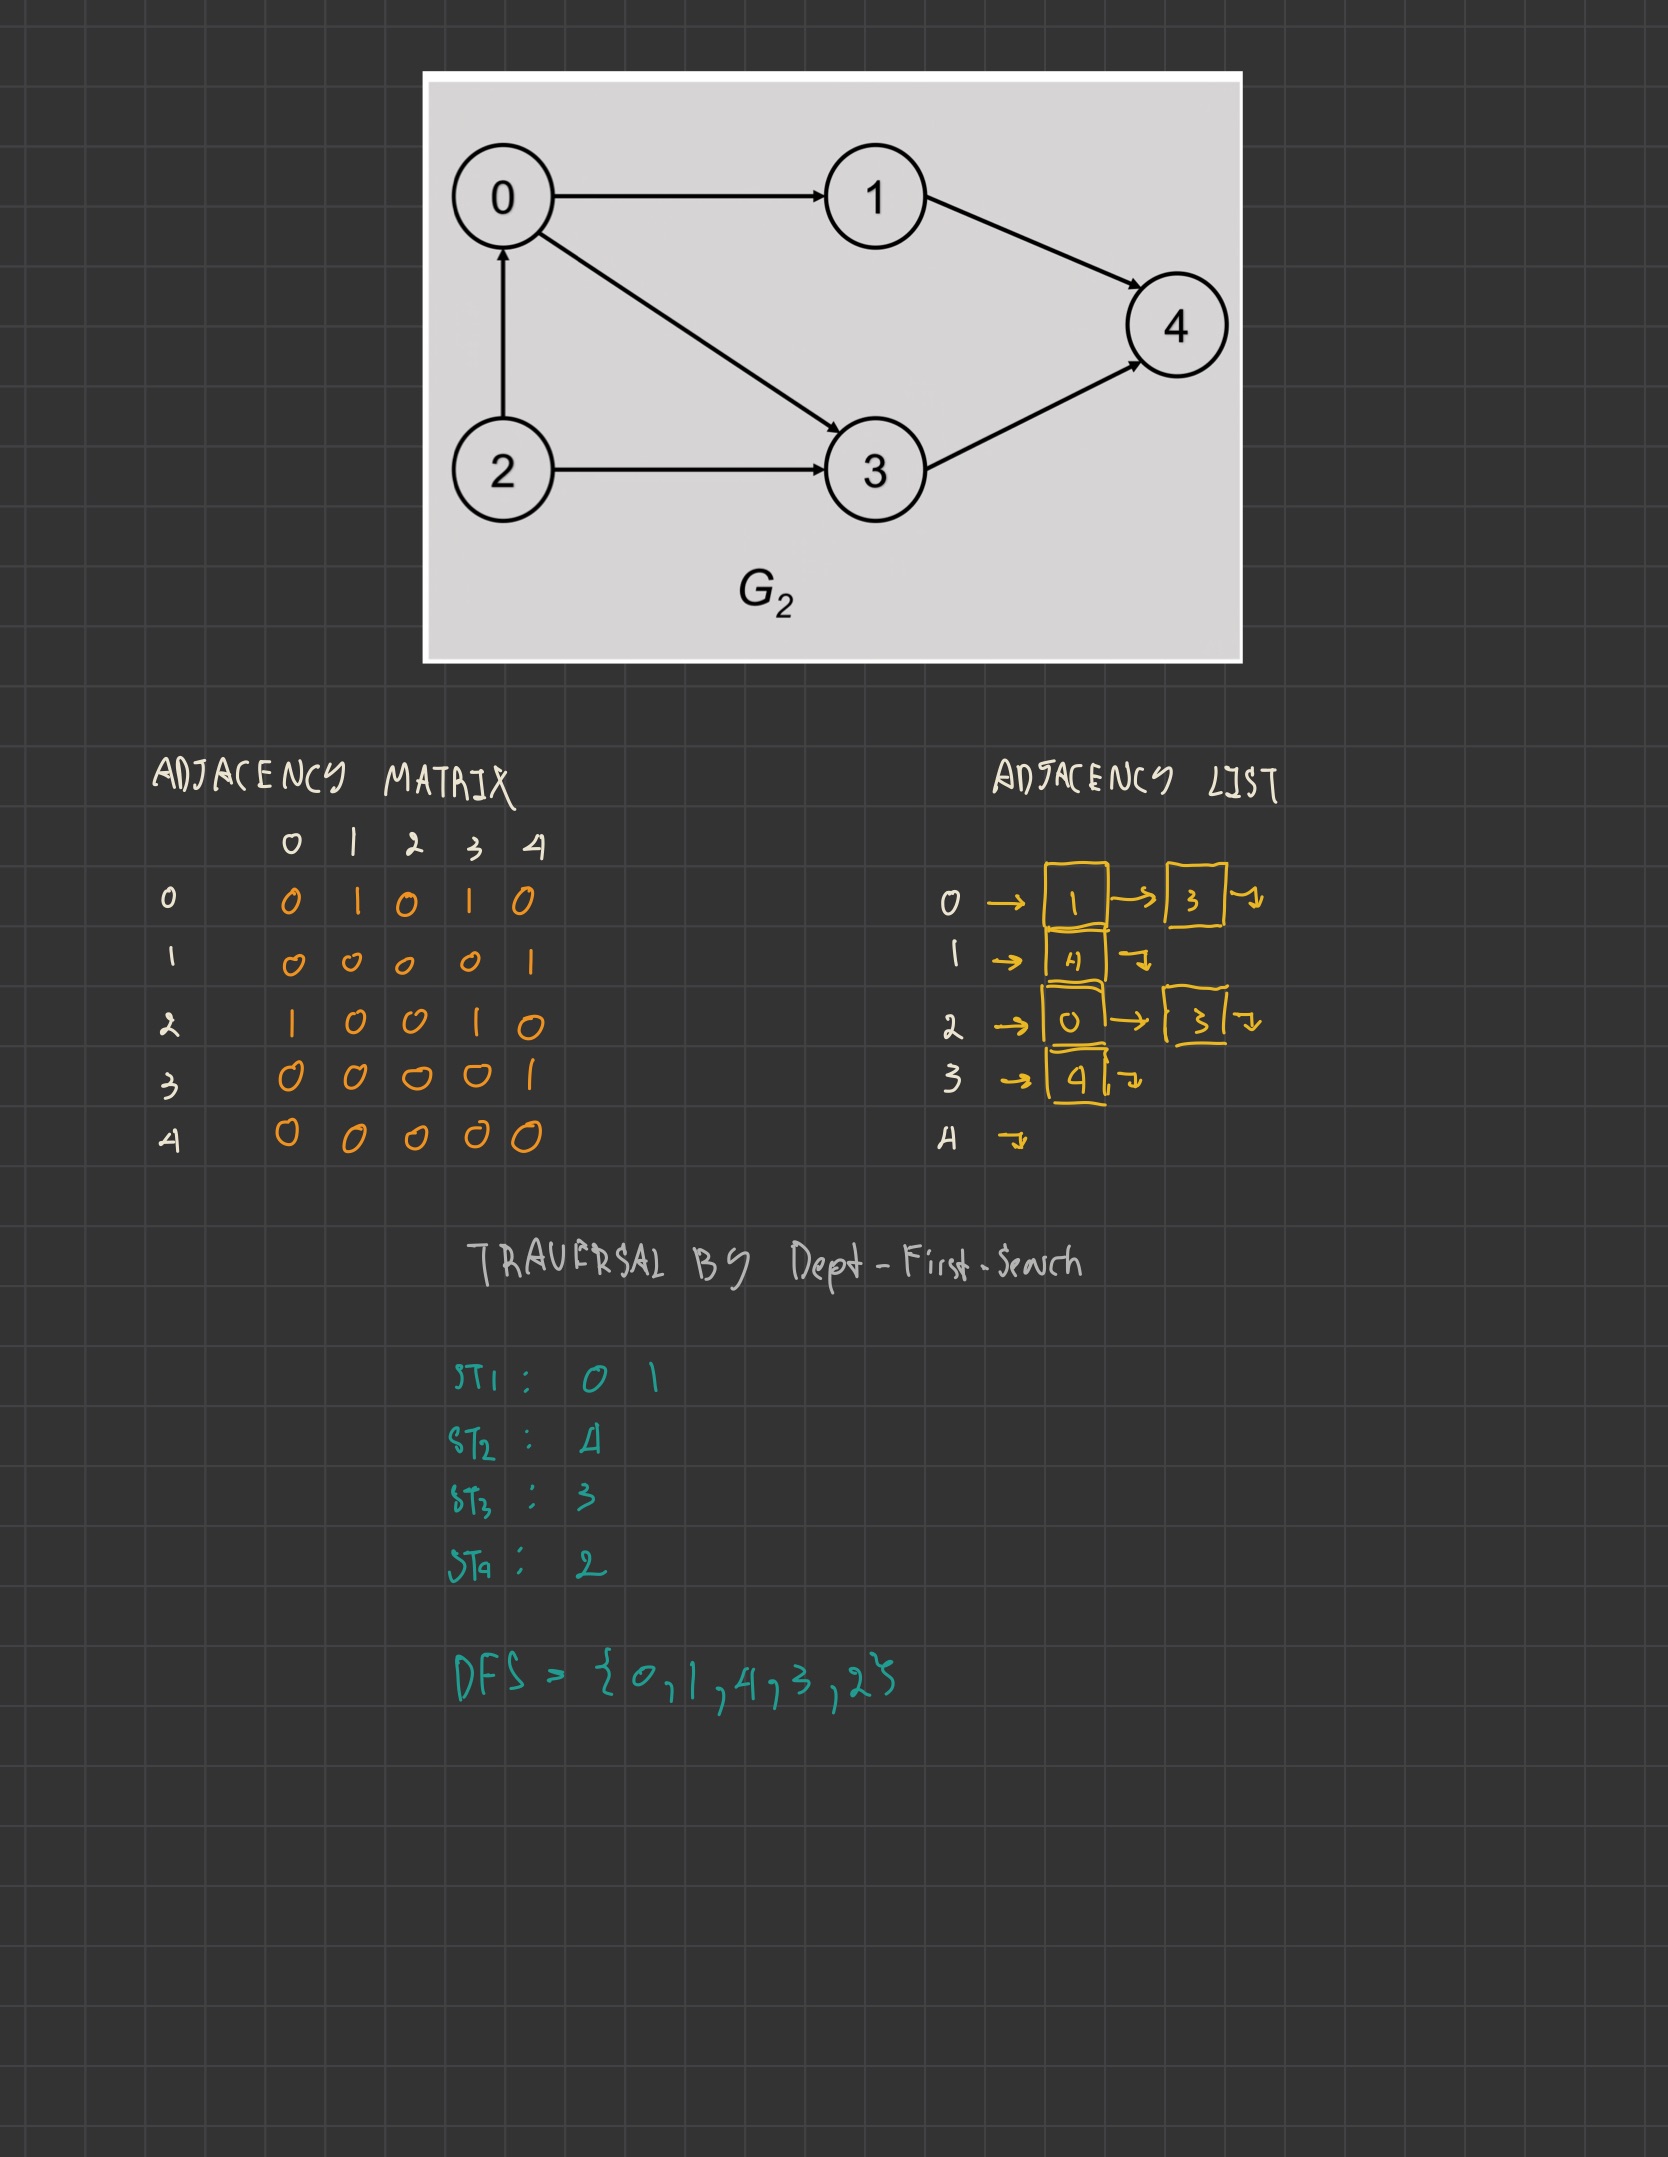 0 1
4
2 3
G2
ADJACENCY MATRIX
0 1 2 3 4
0 0 1 0 1 0
1 0 0 0 0 1
2 1 0 0 1 0
3 0 0 0 0 1
4 0 0 0 0 0
ADJACENCY LIST
0 → 1 → 3
1 → 4
2 → 0 → 3
3 → 4
4
TRAVERSAL BY Dept-First-Search
ST1 : 0 1
ST2 : 4
ST3 : 3
ST4 : 2
DFS = {0,1,4,3,2}